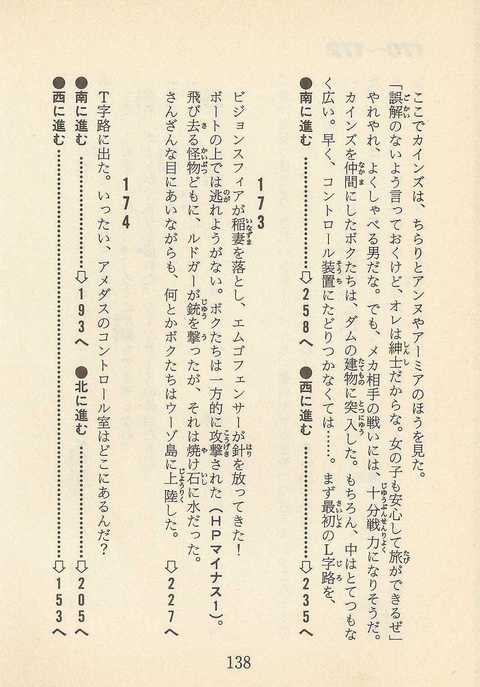 ここでカインズは、ちらりとアンヌやアーミアのほうを見た。
「誤解のないよう言っておくけど、オレは紳士だからな。女の子も安心して旅ができるぜ」
やれやれ、よくしゃべる男だな。でも、メカ相手の戦いには、十分戦力になりそうだ。
カインズを仲間にしたボクたちは、ダムの建物に突入した。もちろん、中はとてつもな
く広い。早く、コントロール装置にたどりつかなくては……。まず最初のL字路を、
●南に進む…………⇨258へ ●西に進む…………⇨235へ
173
ビジョンスフィアが稲妻を落とし、エムゴフェンサーが針を放ってきた！
ボートの上では逃れようがない。ボクたちは一方的に攻撃された（HPマイナス1）。
飛び去る怪物どもに、ルドガーが銃を撃ったが、それは焼け石に水だった。
さんざんな目にあいながらも、何とかボクたちはウーゾ島に上陸した。 ⇨227へ
174
T字路に出た。いったい、アメダスのコントロール室はどこにあるんだ？
●南に進む…………⇨193へ ●北に進む…………⇨205へ
●西に進む…………⇨153へ
138